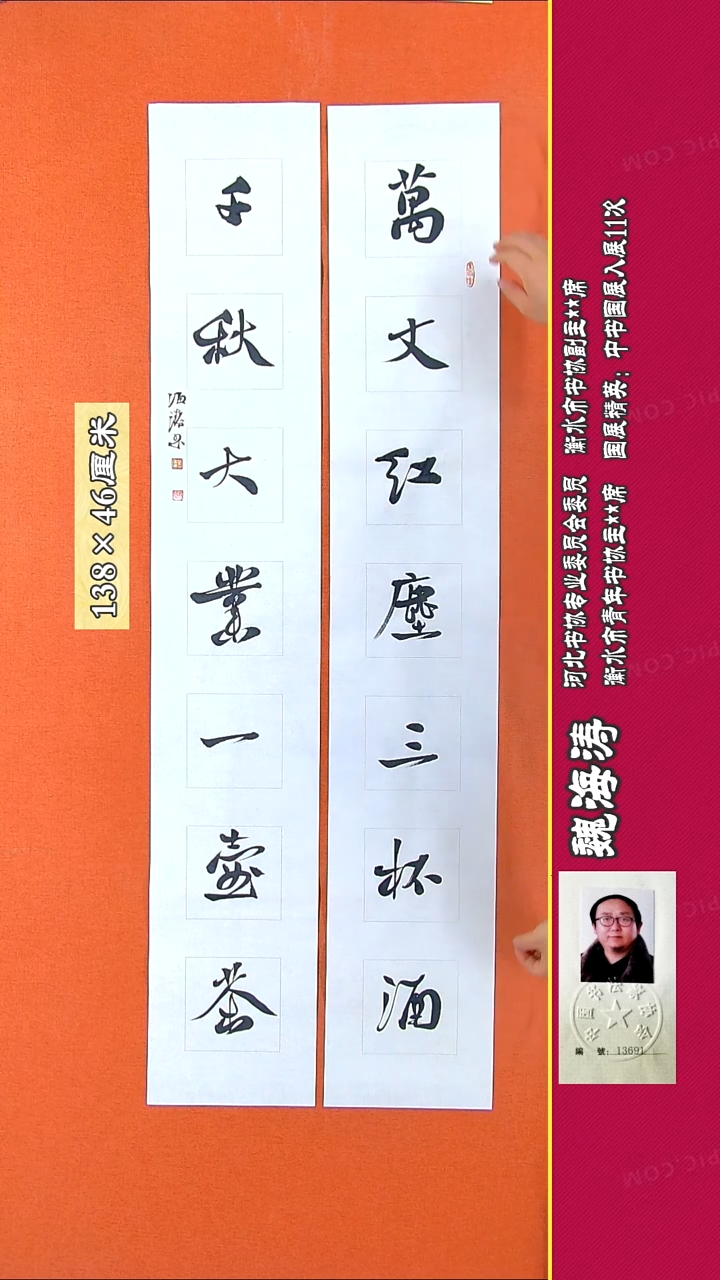 萬丈紅塵三杯酒
千秋大業一壺茶
138×46厘米
魏海涛
河北书协专业委员会委员 衡水市书协副主**席
衡水市青年书协主**席 国展精英：中书国展入展11次
編 號：13691